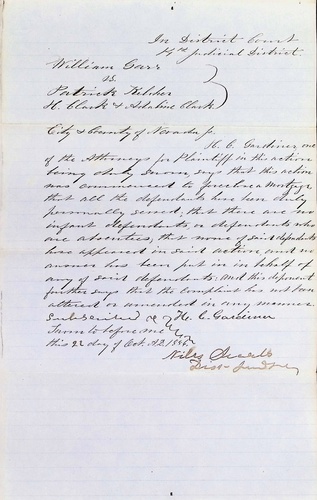 In District Court
14th Judicial District
William Carr
vs
Patrick Kelsher
H. Clark & Adaline Clark
City & County of Nevada ss
H. C. Gardiner, one
of the Attorneys for Plaintiff in this action
being duly sworn, says that this action
was commenced to foreclose a Mortgage
that all the defendants have been duly
personally served, that there are no
infant defendants, or defendants who
are absentees, that none of said defendants
have appeared in said action, and no
answer has been put in in behalf of
any of said defendants. And this deponent
further says that the complaint has not been
altered or amended in any manner
Subscribed & H. C. Gardiner
Sworn to before me
this 22 day of Oct. AD
Niles Searls
Dist Judge